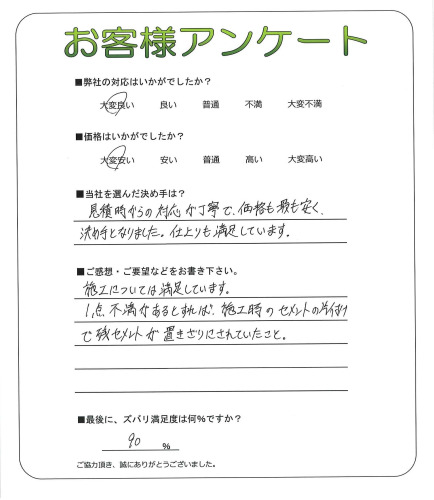 お客様アンケート
■弊社の対応はいかがでしたか?
大変良い 良い 普通 不満 大変不満
■価格はいかがでしたか?
大変安い 安い 普通 高い 大変高い
■当社を選んだ決め手は?
見積時からの対応が丁寧で、価格も最も安く、
決め手となりました。仕上りも満足しています。
■ご感想・ご要望などをお書き下さい。
施工については満足しています。
1点、不満があるとすれば、施工時のセメントの片付け
で残セメントが置きざりにされていたこと。
■最後に、ズバリ満足度は何%ですか?
90 %
ご協力頂き、誠にありがとうございました。